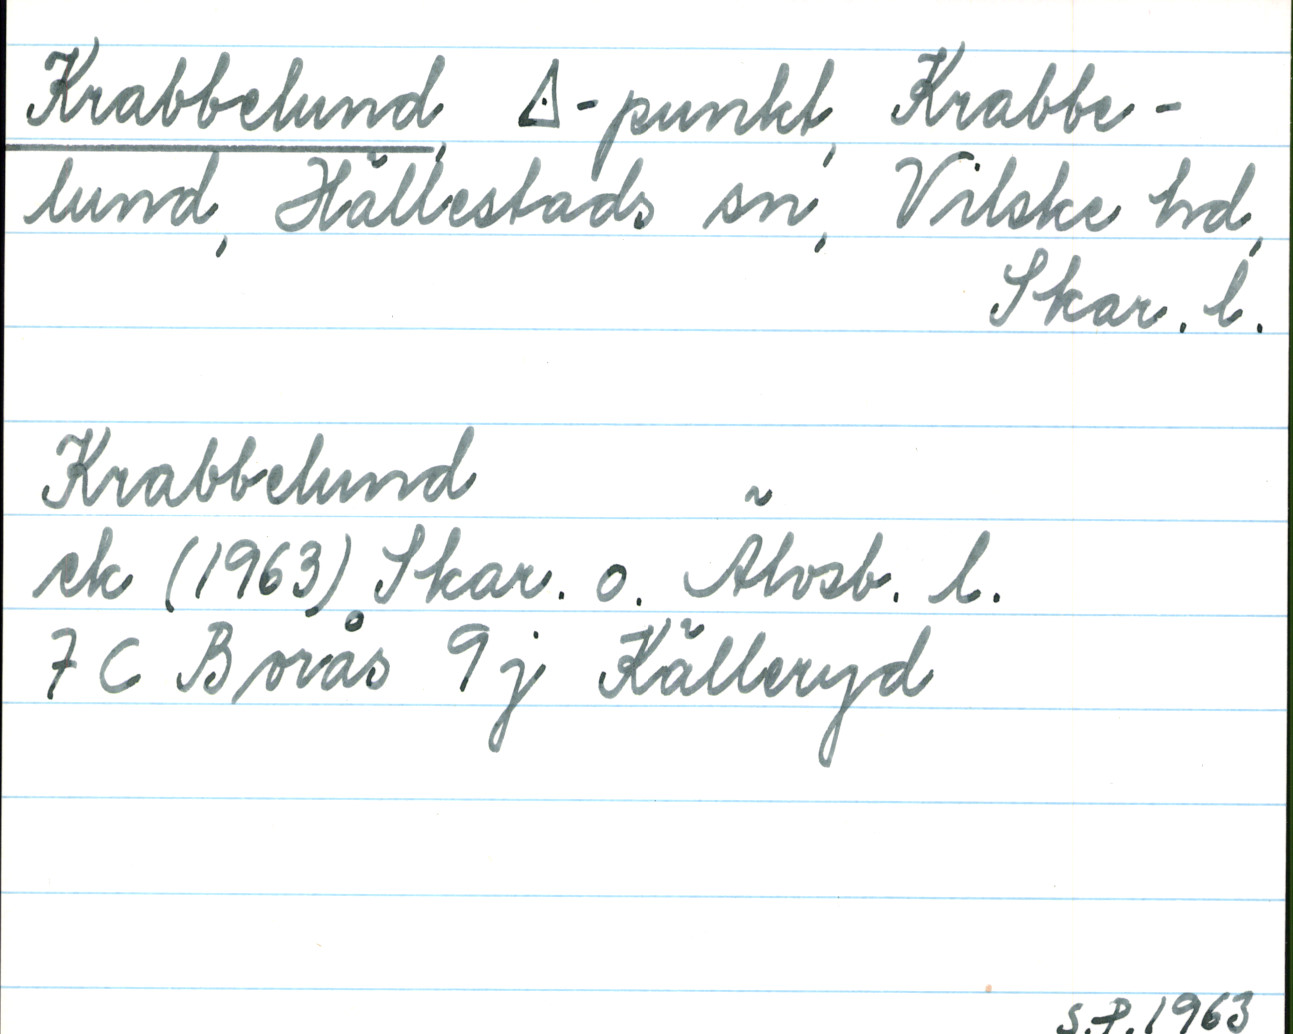 Krabbelund, △-punkt, Krabbe-
lund, Hällestads sn, Vilske hd,
Skar. l.
Krabbelund
ek (1963) Skar. o. Älvsb. l.
7 C Borås 9 j Källeryd
S.P. 1963